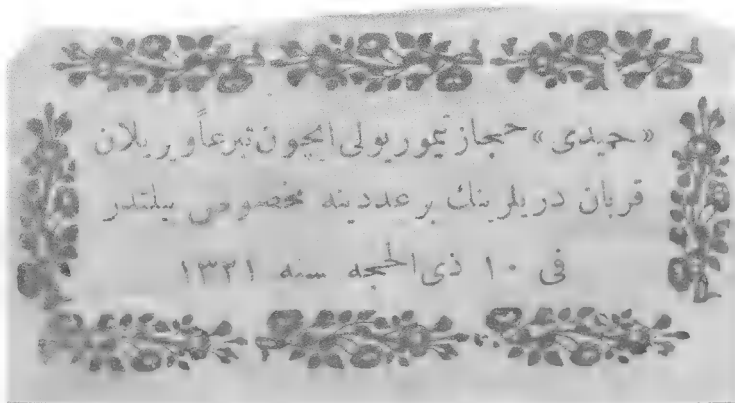 «حمیدی» حجاز تیموریولی ایچون تبرعاً ویریلان
قربان دریلرینك بر عددینه مخصوص بیلتدر
فی ١٠ ذی الحجه سنه ١٣٢١